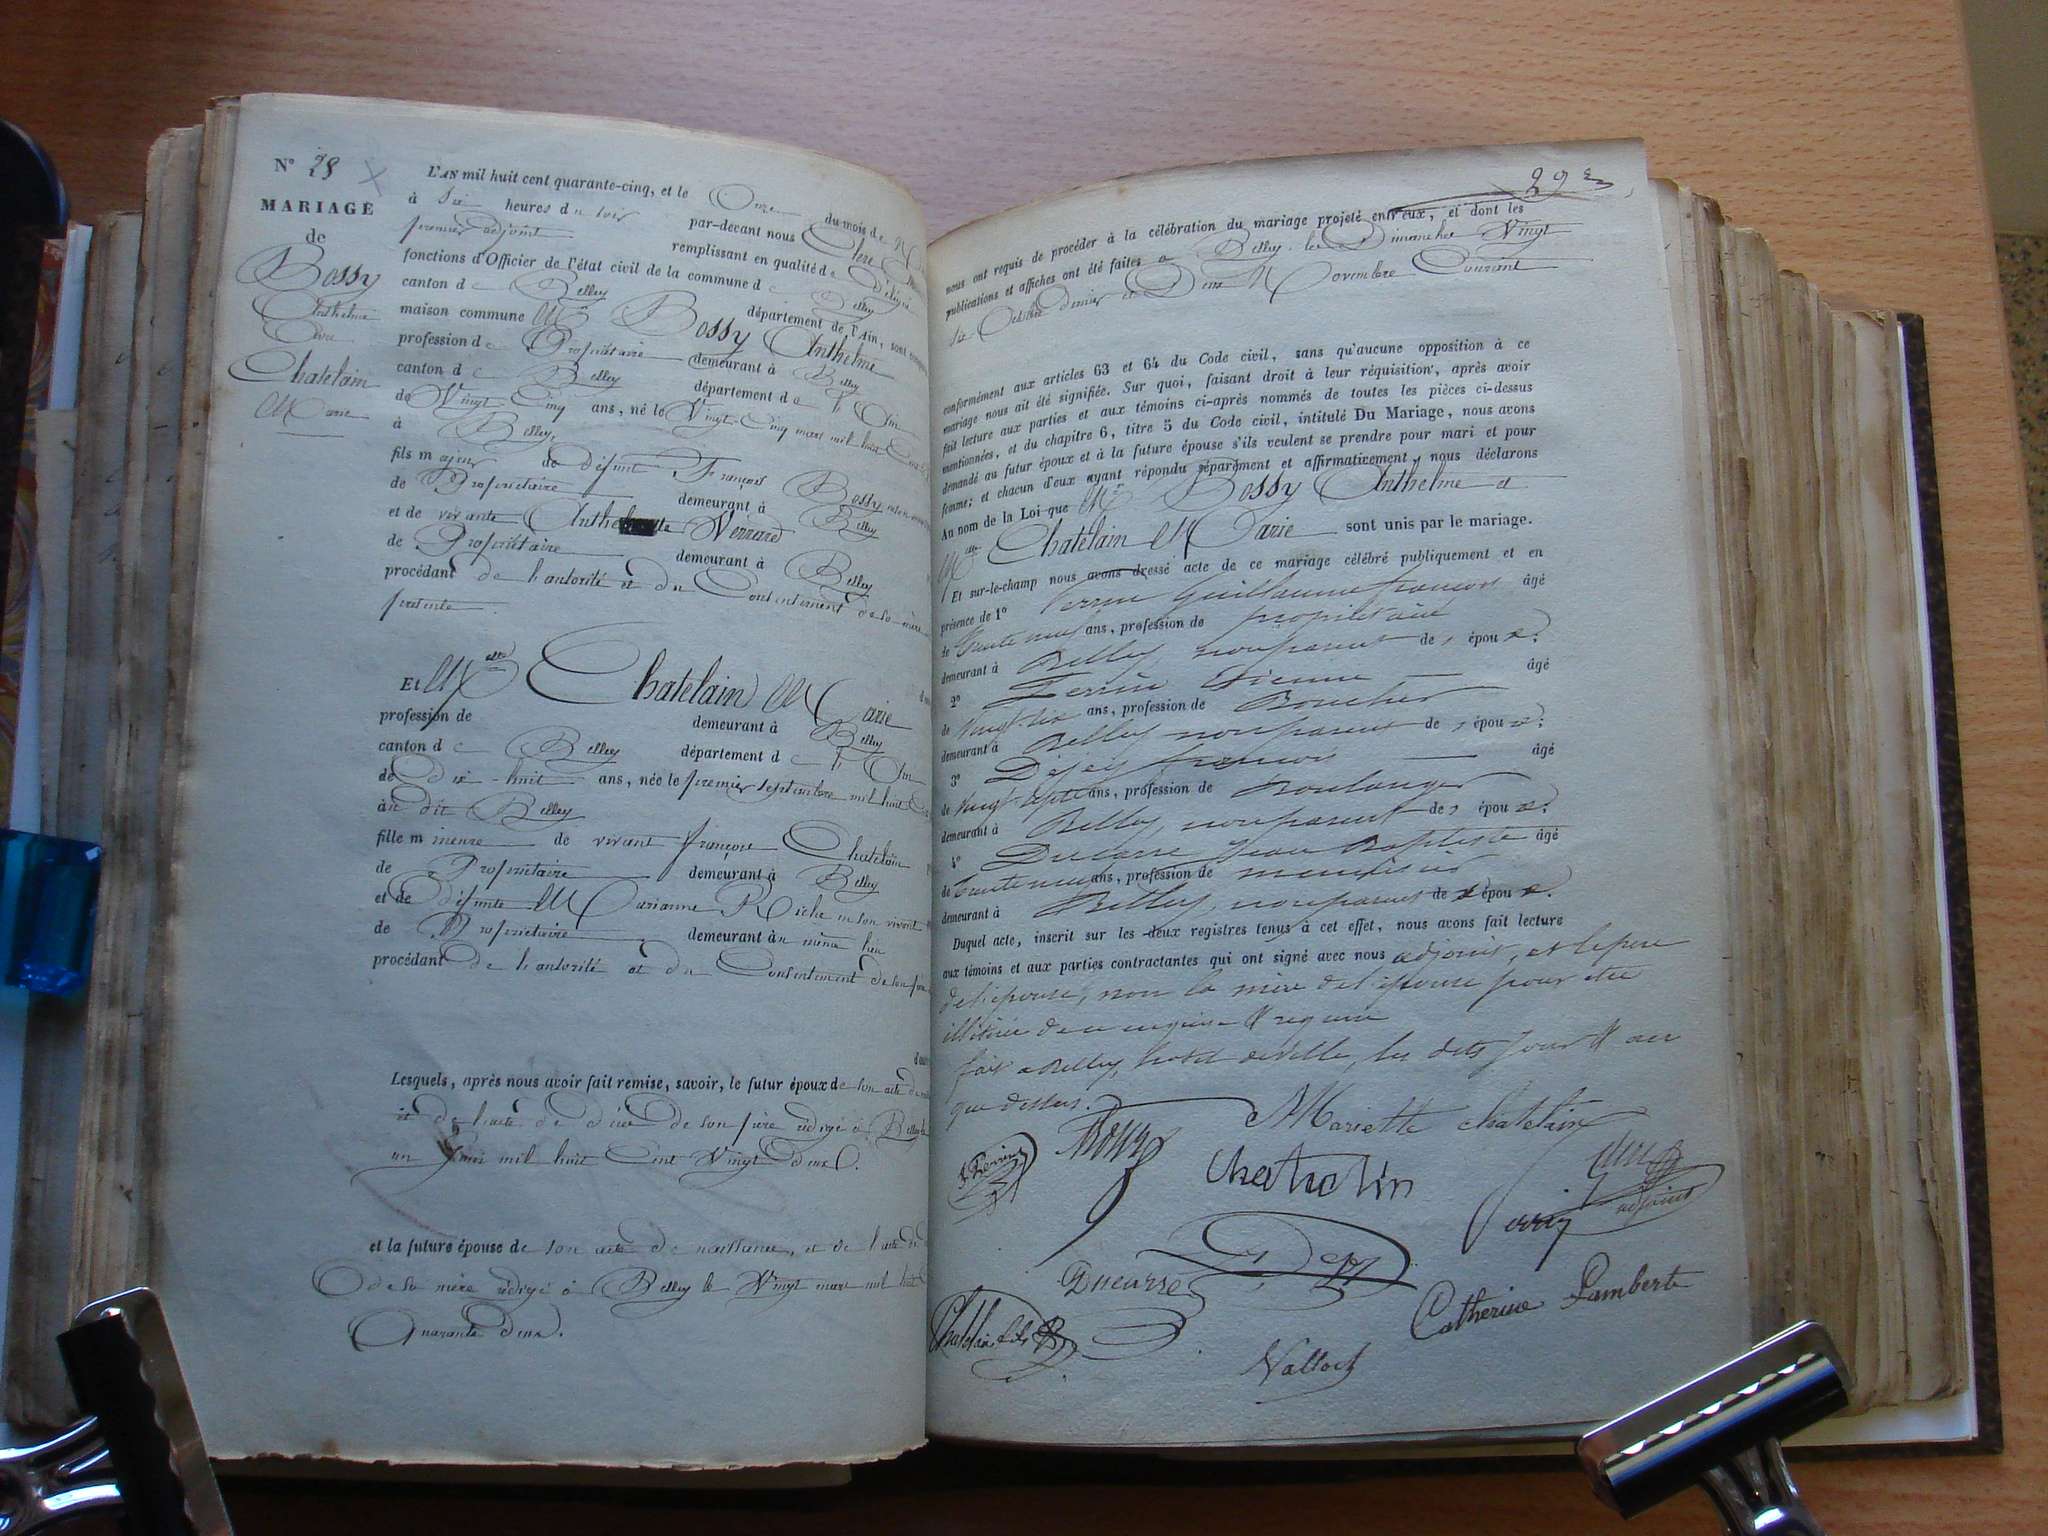 N° 28
MARIAGE
de
Bossy
Anthelme
Et
Chatelain
Marie
L'AN mil huit cent quarante-cinq, et le Onze du mois de
à Six heures du soir par-devant nous
premier adjoint remplissant en qualité de Délégué
fonctions d'Officier de l'état civil de la commune de Belley
canton de Belley département de l'Ain, sont
maison commune Mr Bossy Anthelme
profession de Propriétaire demeurant à Belley
canton de Belley département de l'Ain
de Vingt Cinq ans, né le Vingt-Cinq mars mil huit Cent
à Belley,
fils majeur de défunt François Bossy
de Propriétaire demeurant à Belley
et de vivante
de Propriétaire demeurant à Belley
procédant de l'autorité et du Consentement de sa mère
présente.
Et Melle Chatelain Marie
profession de demeurant à Belley
canton de Belley département de l'Ain
de dix-huit ans, née le premier septembre mil huit
au dit Belley
fille mineure de vivant françois Chatelain
de Propriétaire demeurant à Belley
et de défunte Marianne Riche en son vivant
de Propriétaire demeurant au même lieu
procédant de l'autorité et du Consentement de son père
Lesquels, après nous avoir fait remise, savoir, le futur époux de son acte de
et de l'acte de décès de son père rédigé à Belley le
un mil huit Cent Vingt deux.
et la future épouse de son acte de naissance, et de l'acte de
de sa mère rédigé à Belley le Vingt mars mil huit
Quarante deux.
29
nous ont requis de procéder à la célébration du mariage projeté entr'eux, et dont les
publications et affiches ont été faites à Belley les Dimanches Vingt
Six Octobre dernier et Deux Novembre Courant
conformément aux articles 63 et 64 du Code civil, sans qu'aucune opposition à ce
mariage nous ait été signifiée. Sur quoi, faisant droit à leur réquisition, après avoir
fait lecture aux parties et aux témoins ci-après nommés de toutes les pièces ci-dessus
mentionnées, et du chapitre 6, titre 5 du Code civil, intitulé Du Mariage, nous avons
demandé au futur époux et à la future épouse s'ils veulent se prendre pour mari et pour
femme; et chacun d'eux ayant répondu séparément et affirmativement, nous déclarons
Au nom de la Loi que Mr Bossy Anthelme et
Melle Chatelain Marie sont unis par le mariage.
Et sur-le-champ nous avons dressé acte de ce mariage célébré publiquement et en
présence de 1° Perrin Guillaume françois âgé
de trente neuf ans, profession de propriétaire
demeurant à Belley, non parent de s époux;
2° Perrin Etienne âgé
de Vingt six ans, profession de Boucher
demeurant à Belley non parent de s époux;
3° françois âgé
de Vingt sept ans, profession de Boulanger
demeurant à Belley, non parent de s époux;
4° Jean Baptiste âgé
de trente neuf ans, profession de menuisier
demeurant à Belley, non parent de s époux.
Duquel acte, inscrit sur les deux registres tenus à cet effet, nous avons fait lecture
aux témoins et aux parties contractantes qui ont signé avec nous adjoint, et le père
de l'épouse, non la mère de l'époux pour être
illitérée de ce enquise & requise
fait a Belley, hotel de ville, les dits jour & an
que dessus.
Mariette chatelain
Bossy
chatelin
Perrin
adjoint
Ducurse
Catherine Lamberte
Chatelain fils
Vallod